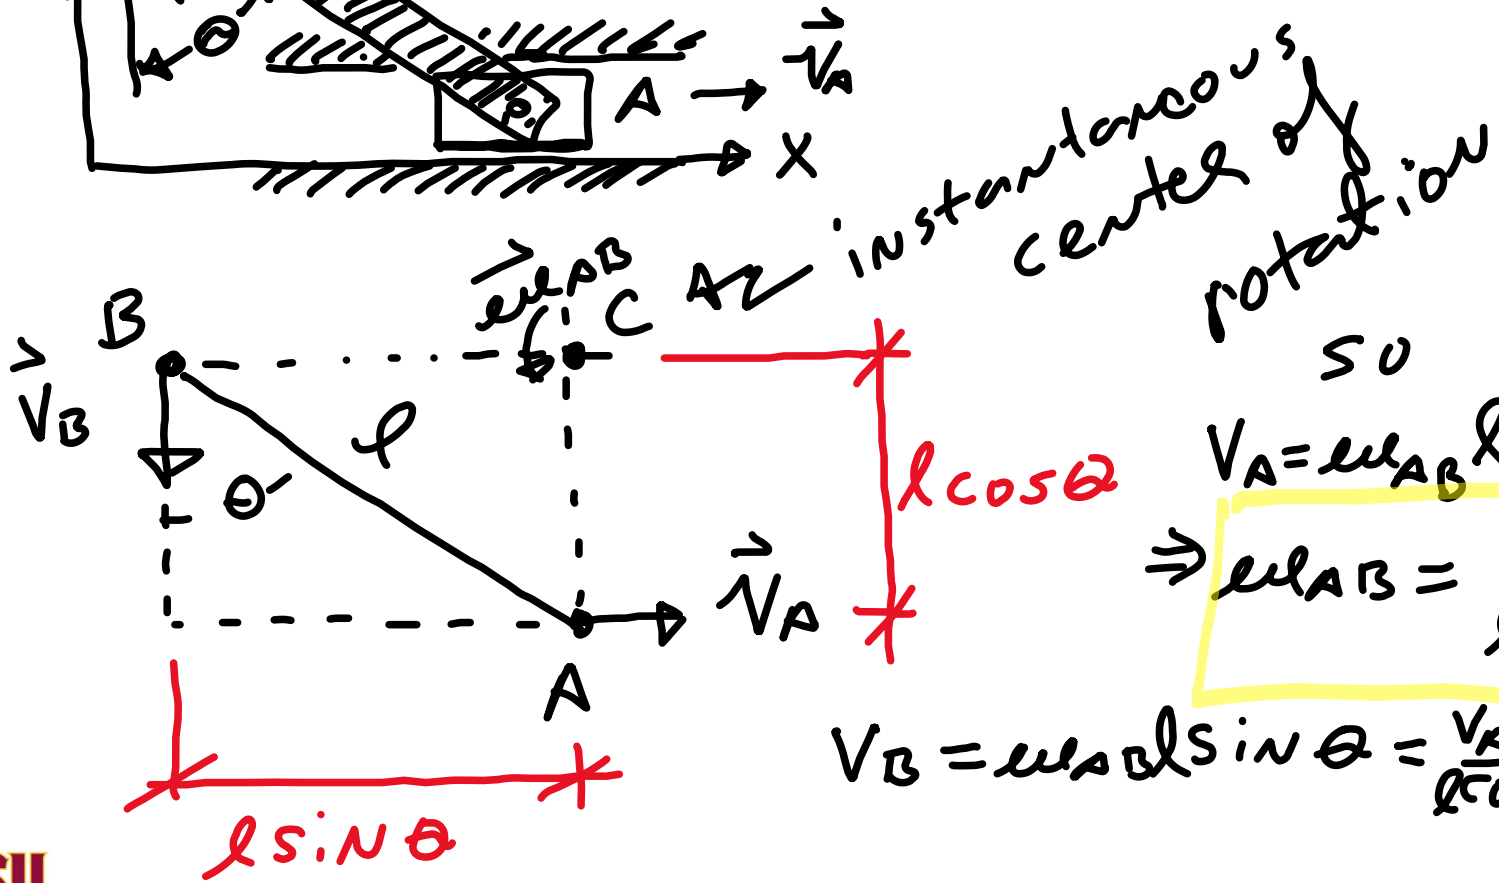 θ
A
V⃗_A
X
instantaneous
center of
rotation
B
ω⃗_AB
C
V⃗_B
l
θ
l cosθ
V⃗_A
A
l sin θ
so
V_A = ω_AB l
⇒ ω_AB =
V_B = ω_AB l sin θ = V_A